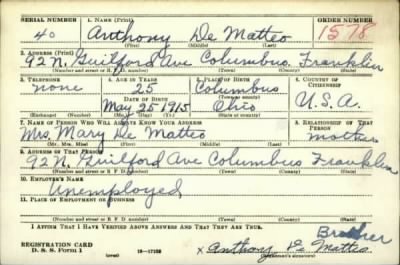 SERIAL NUMBER 1. NAME (Print) ORDER NUMBER
40 Anthony De Matteo 1578
(First) (Middle) (Last)
2. ADDRESS (Print)
92 N. Guilford Ave Columbus, Franklin
(Number and street or R. F. D. number) (Town) (County) (State)
3. TELEPHONE 4. AGE IN YEARS 5. PLACE OF BIRTH 6. COUNTRY OF CITIZENSHIP
none 25 Columbus
DATE OF BIRTH
May 25 1915 Ohio U.S.A.
(Exchange) (Number) (Mo.) (Day) (Yr.) (State or country)
7. NAME OF PERSON WHO WILL ALWAYS KNOW YOUR ADDRESS 8. RELATIONSHIP OF THAT PERSON
Mrs. Mary De Matteo mother
(Mr., Mrs., Miss) (First) (Middle) (Last)
9. ADDRESS OF THAT PERSON
92 N. Guilford Ave Columbus Franklin
(Number and street or R. F. D. number) (Town) (County) (State)
10. EMPLOYER'S NAME
Unemployed
11. PLACE OF EMPLOYMENT OR BUSINESS
(Number and street or R. F. D. number) (Town) (County) (State)
I AFFIRM THAT I HAVE VERIFIED ABOVE ANSWERS AND THAT THEY ARE TRUE.
Brother
REGISTRATION CARD
D. S. S. Form 1 x Anthony De Matteo
(Registrant's signature)